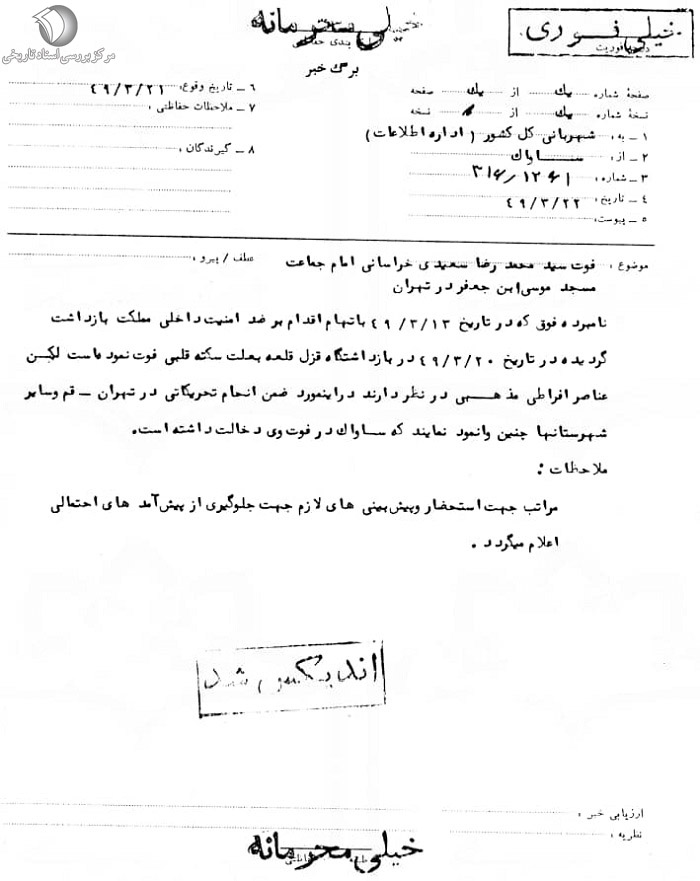 مرکز بررسی اسناد تاریخی
خیلی محرمانه
خیلی فوری
برگ خبر
صفحهٔ شماره یک از یک صفحه
نسخهٔ شماره یک از نسخه
۱ - به : شهربانی کل کشور (اداره اطلاعات)
۲ - از : ساواک
۳ - شماره : ۳۱۶/۱۲۶۱
۴ - تاریخ : ۴۹/۳/۲۲
۵ - پیوست :
۶ - تاریخ وقوع : ۴۹/۳/۲۱
۷ - ملاحظات حفاظتی :
۸ - گیرندگان :
موضوع : فوت سید محمد رضا سعیدی خراسانی امام جماعت عطف / پیرو :
مسجد موسی ابن جعفر در تهران
نامبرده فوق که در تاریخ ۴۹/۳/۱۳ باتهام اقدام بر ضد امنیت داخلی مملکت بازداشت
گردیده در تاریخ ۴۹/۳/۲۰ در بازداشتگاه قزل قلعه بعلت سکته قلبی فوت نموده است لکن
عناصر افراطی مذهبی در نظر دارند در اینمورد ضمن انجام تحریکاتی در تهران - قم و سایر
شهرستانها چنین وانمود نمایند که ساواک در فوت وی دخالت داشته است.
ملاحظات :
مراتب جهت استحضار و پیش بینی های لازم جهت جلوگیری از پیش آمد های احتمالی
اعلام میگردد .
اندیکس شد
ارزیابی خبر :
نظریه :
خیلی محرمانه